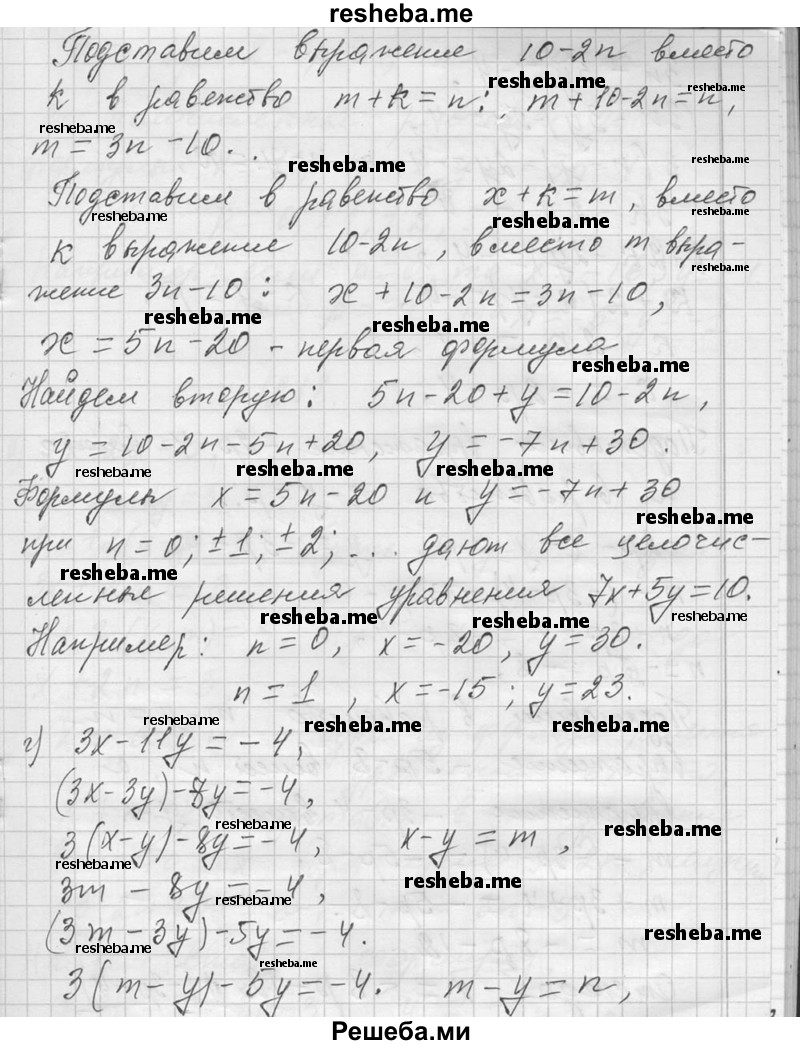 resheba.me
Подставим выражение 10-2n вместо
resheba.me resheba.me
k в равенство m+k=n: m+10-2n=n,
resheba.me
m=3n-10.
resheba.me resheba.me
Подставим в равенство x+k=m, вместо
resheba.me resheba.me resheba.me
k выражение 10-2n, вместо m выра-
resheba.me
жение 3n-10: x+10-2n=3n-10,
resheba.me resheba.me
x=5n-20 - первая формула
resheba.me
Найдем вторую: 5n-20+y=10-2n,
y=10-2n-5n+20, y=-7n+30.
resheba.me resheba.me resheba.me
Формулы x=5n-20 и y=-7n+30
resheba.me
при n=0; ±1; ±2; ... дают все целочис-
resheba.me
ленные решения уравнения 7x+5y=10.
resheba.me resheba.me resheba.me
Например: n=0, x=-20, y=30.
n=1, x=-15; y=23.
resheba.me resheba.me resheba.me
г) 3x-11y=-4,
(3x-3y)-8y=-4,
resheba.me resheba.me
3(x-y)-8y=-4, x-y=m,
resheba.me resheba.me
3m-8y=-4,
(3m-3y)-5y=-4.
resheba.me resheba.me
resheba.me
3(m-y)-5y=-4. m-y=n,
Решеба.ми